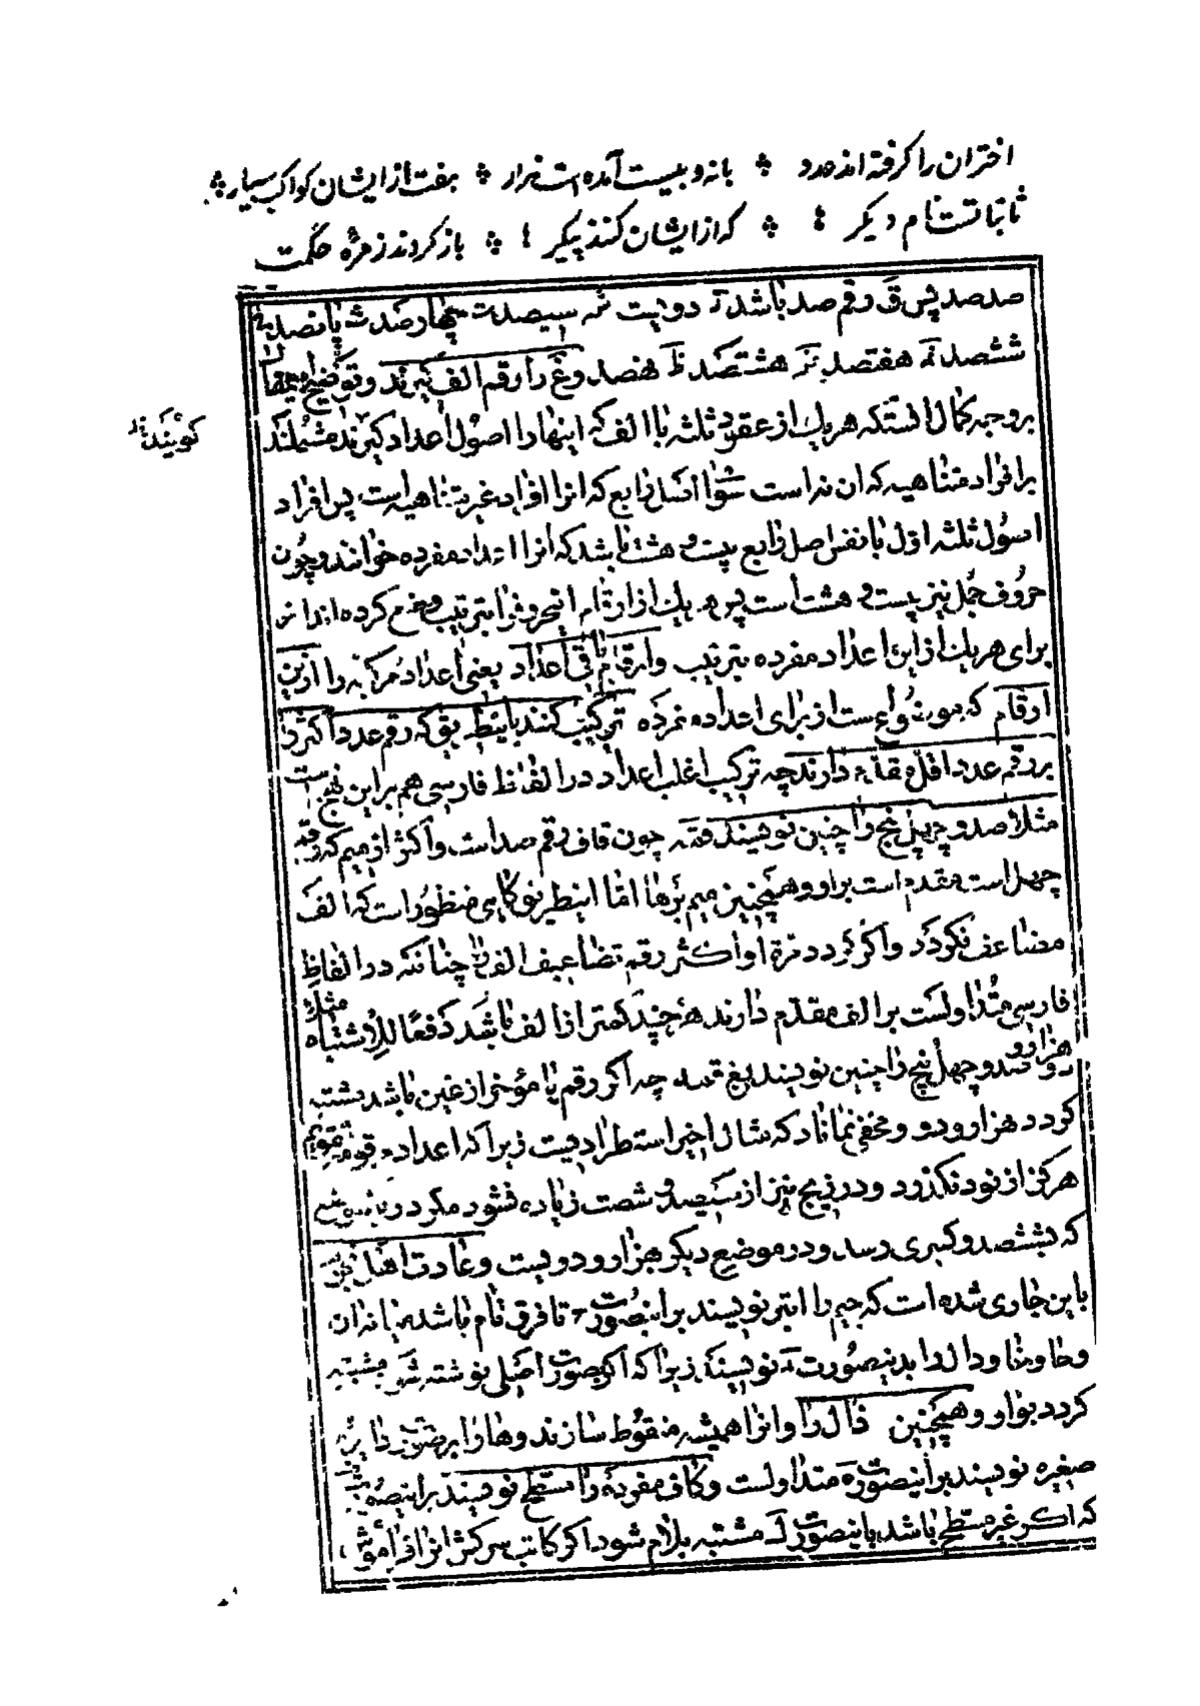 اختران را گرفته اند عدد * با نه و بیست آمده است هزار * هفت از ایشان کواکب سیار *
ثابتات است نام دیگر * که از ایشان کنند پیکر * باز کردند زمرهٔ حکمت
صد صد پس ق رقم صد باشد ر دویست ش سیصد ت چهارصد ث پانصد خ
ششصد ذ هفتصد ض هشتصد ظ نهصد و غ را رقم الف گیرند و توضیح این مقال
بر وجه کمال انستکه هر یک از عقود ثلثه با الف که اینها را اصول اعداد گیرند مشتملند
گویند
بر افراد متناهیه که ان نه است سوا اصل رابع که انرا افراد غیر متناهیه است پس افراد
اصول ثلثه اول با نفس اصل رابع بیست و هشت باشد که انرا اعداد مفرده خوانند و چون
حروف جمل نیز بیست و هشت است پس هر یک از ارقام این حروف را بترتیب وضع کرده اند از
برای هر یک از این اعداد مفرده بترتیب و ارقام باقی اعداد یعنی اعداد مرکبه را ازین
ارقام که موضوع است از برای اعداد مفرده ترکیب کنند باینطریق که رقم عدد اکثر را
بر رقم عدد اقل مقدم دارند چه ترکیب اغلب اعداد در الفاظ فارسی هم بر این نهج است
مثلا صد و چهل پنج را چنین نویسند قمه چون قاف رقم صد است و اکثر از میم که رقم
چهل است مقدم است بر او و همچنین میم بر ها اما اینطریق تا گاهی منظور است که الف
مضاعف نگردد و اگر گردد مرة او اکثر رقم تضاعیف الف را چنانکه در الفاظ
فارسی متداولست بر الف مقدم دارند هر چند کمتر از الف باشد دفعا للاشتباه مثلا
دو هزار و صد و چهل پنج را چنین نویسند بغقمه چه اگر رقم با مؤخر از غین باشد مشتبه
گردد بهزار و دو و مخفی نماناد که مثال اخیر استطرادیست زیرا که اعداد مرقومه تقویم
هرگز از نود نگذرد و در زیج نیز از سیصد و شصت زیاده نشود مگر در موضع
که بششصد و کسری رسد و در موضع دیگر هزار و دویست و عادت اهل فن
باین جاری شده است که جیم را ابتر نویسند بر اینصورت ح تا فرق تام باشد میانه ان
و حا و مثل دال را بدینصورت د نویسند زیرا که اگر بصورت اصلی نوشته شود مشتبه
گردد بواو و همچنین ذال را و انرا همیشه منقوط سازند و ها را بر صورت دایره
صغیره نویسند بر اینصورت ه متداولست و کاف مفرده را مسطح نویسند بر اینصورت
که اگر غیر مسطح باشد باینصورت ک مشتبه بلام شود اگر کاتب سرکش انرا فراموش